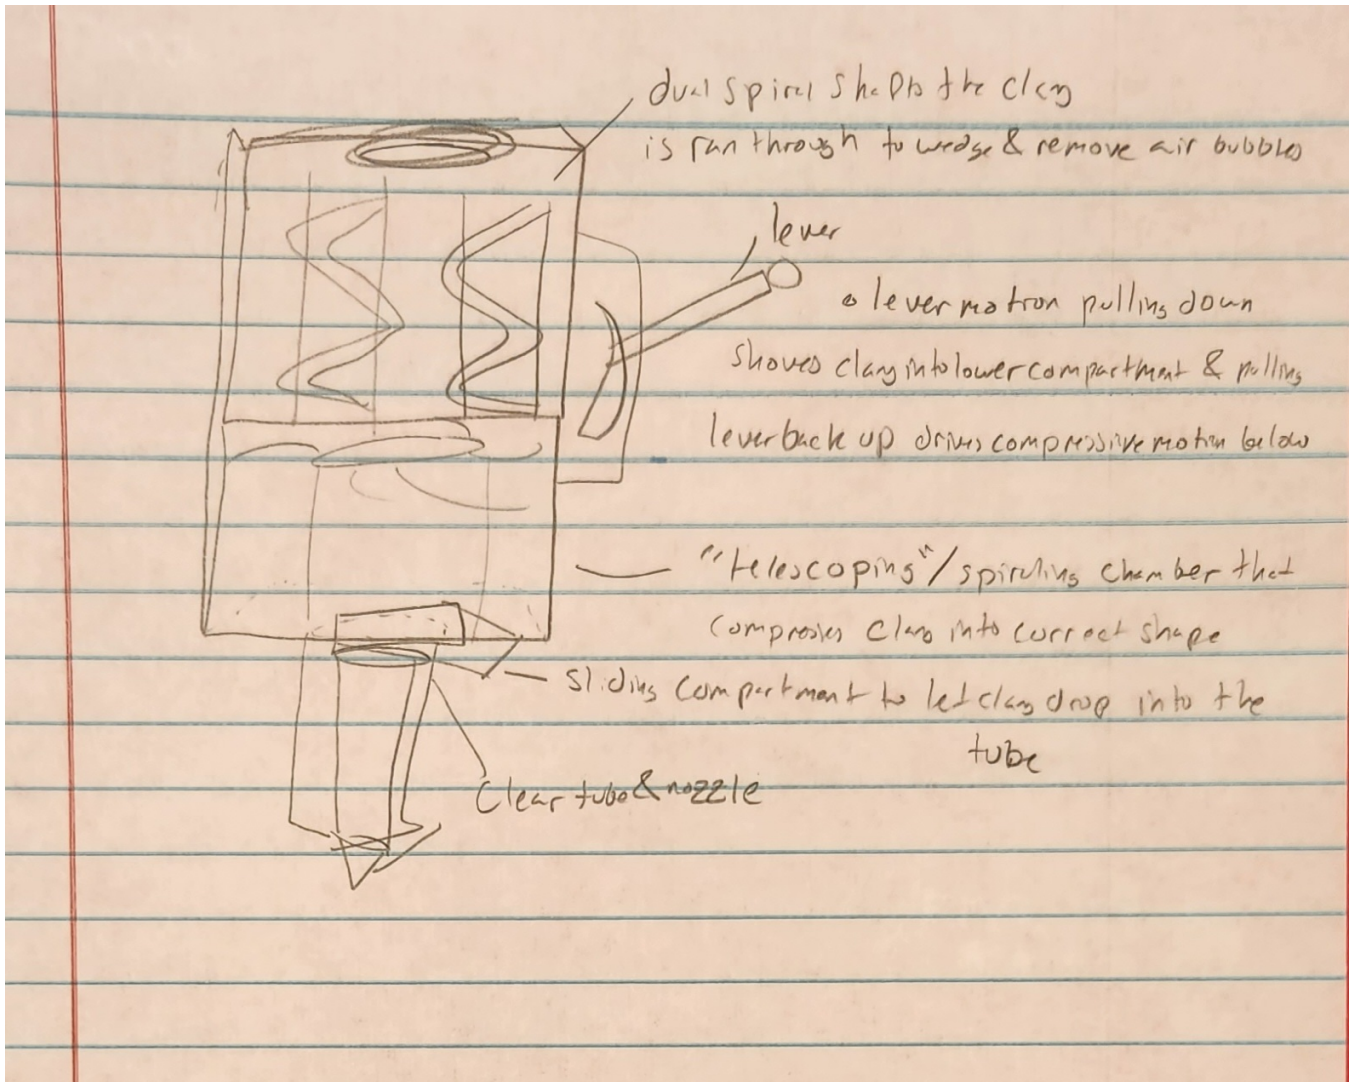 dual spiral shapes the clay
is ran through to wedge & remove air bubbles
lever
lever motion pulling down
shoves clay into lower compartment & pulling
lever back up drives compressive motion below
"telescoping"/spiraling chamber that
compresses clay into correct shape
sliding compartment to let clay drop into the
tube
Clear tube & nozzle